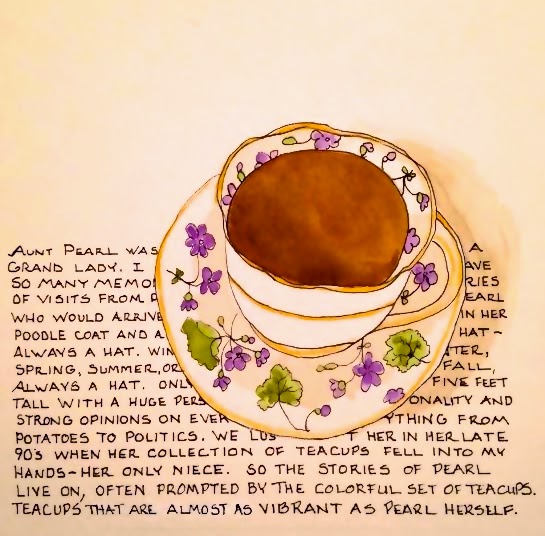 AUNT PEARL WAS A
GRAND LADY. I AVE
SO MANY MEMO RIES
OF VISITS FROM P EARL
WHO WOULD ARRIVE IN HER
POODLE COAT AND A HAT-
ALWAYS A HAT. WIN TER,
SPRING, SUMMER, OR FALL,
ALWAYS A HAT. ONLY FIVE FEET
TALL WITH A HUGE PERS ONALITY AND
STRONG OPINIONS ON EVER YTHING FROM
POTATOES TO POLITICS. WE LOS T HER IN HER LATE
90'S WHEN HER COLLECTION OF TEACUPS FELL INTO MY
HANDS-HER ONLY NIECE. SO THE STORIES OF PEARL
LIVE ON, OFTEN PROMPTED BY THE COLORFUL SET OF TEACUPS.
TEACUPS THAT ARE ALMOST AS VIBRANT AS PEARL HERSELF.